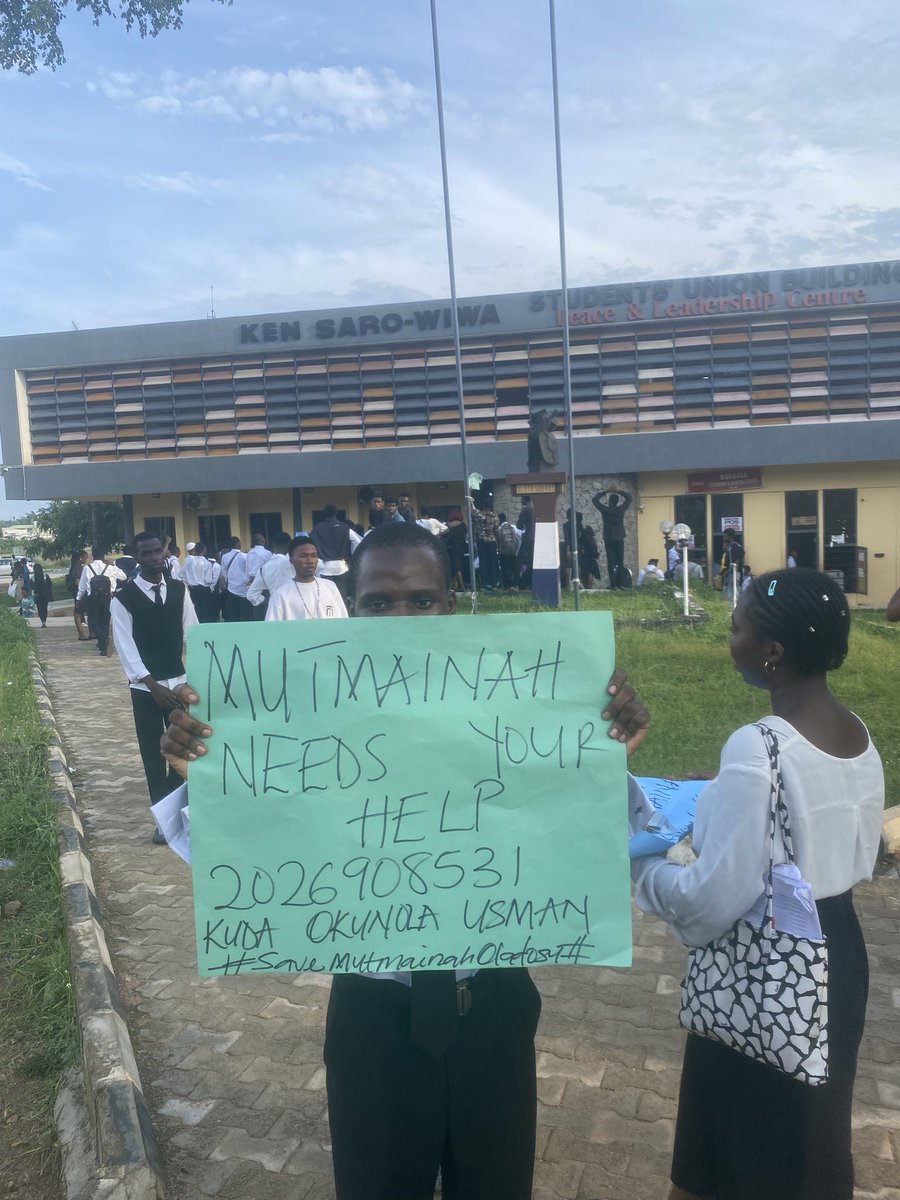 KEN SARO-WIWA STUDENTS' UNION BUILDING
Peace & Leadership Centre
MUTMAINAH
NEEDS YOUR
HELP
2026908531
KUDA OKUNOLA USMAN
#SaveMutmainahOlatosu#